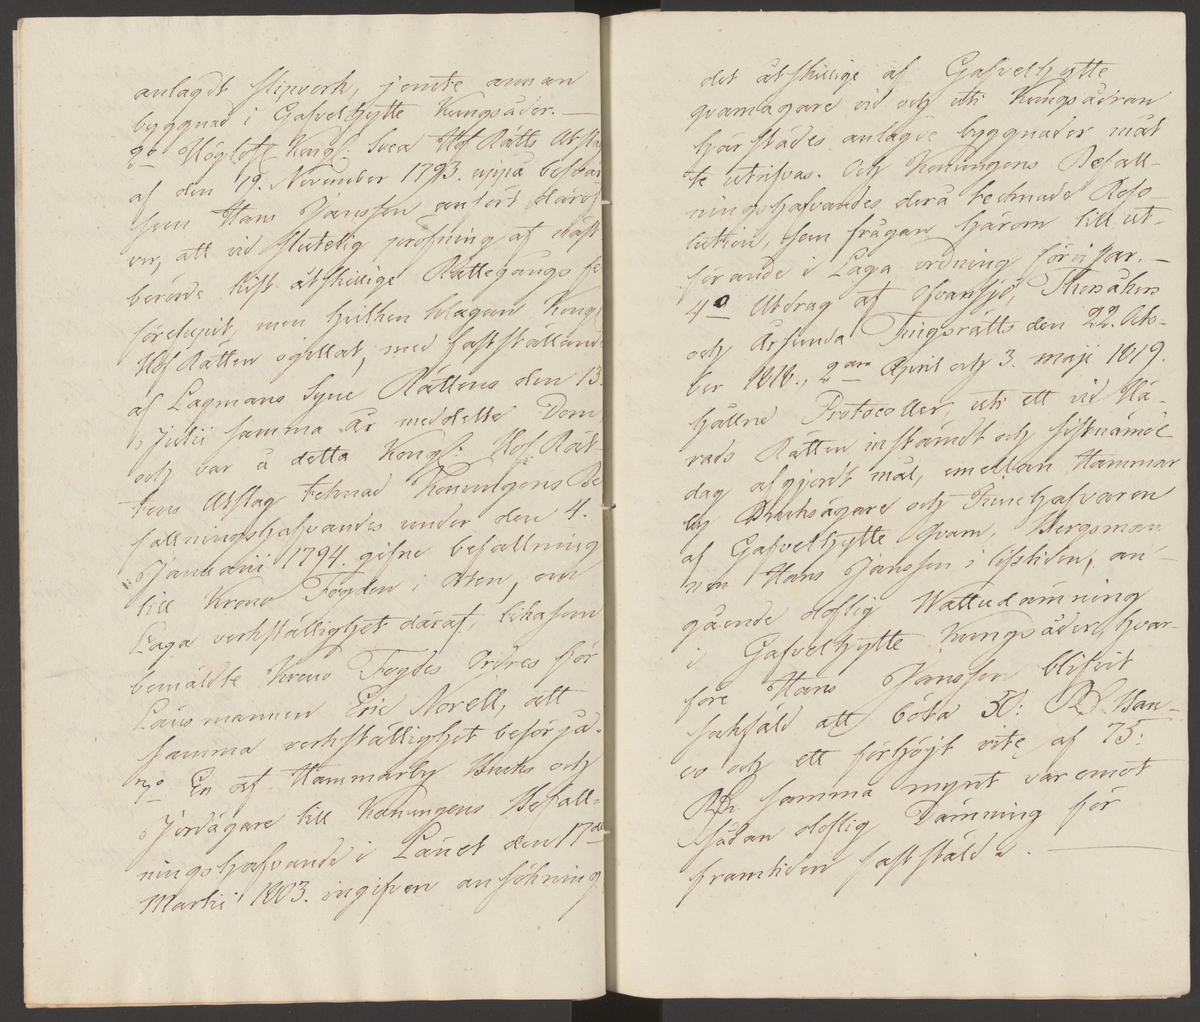 anlagdt slipverk, jemte annan
byggnad i Gafvelhytte Kungsåder. —
2o Höglofl. Kongl. Svea Hof Rätts Utsla
af den 19. November 1793. uppå besvär
som Hans Jansson anfört däröf
ver, att vid slutelig profning af
berörde tvist åtskillige Rättegångs fe
förelupit, men hvilken klagan Kongl
Hof Rätten ogillat, med fastställand
af Lagmans Syne Rättens den 13.
Julii samma år meddelte Dom
och var å detta Kongl. Hof Rät-
tens Utslag tecknad Konungens Be
fallningshafvandes under den 4.
Januarii 1794. gifne befallning
till Krono Fogden i orten, om
Laga verkställighet däraf, likasom
bemälte Krono Fogdes Ordres för
Länsmannen Eric Norell, att
samma verkställighet besörja.
3o En af Hammarby Bruks och
Jordägare till Konungens Befall-
ningshafvande i Länet den 17de
Martii 1803. ingifven ansökning
det åtskillige af Gafvelhytte
qvarnägare vid och uti Kungsådran
härstädes anlagde byggnader måt
te utrifvas. Och Konungens Befall-
ningshafvandes derå tecknade Reso
lution, som frågan härom till ut-
förande i Laga ordning förvisar. —
4o Utdrag af Ofvansjö, Thorsåkers
och Årsunda Tingsrätts den 22. Octo-
ber 1818., 2dra April och 3. maji 1819.
hållne Protocoller, uti ett vid Hä-
rads Rätten instämdt och sistnämde
dag afgjordt mål, emellan Hammar
by Bruksägare och Innehafvaren
af Gafvelhytte Qvarn, Bergsman
nen Hans Jansson i lifstiden, an-
gående oloflig Wattudämning
i Gafvelhytte Kungsåder, hvar-
före Hans Jansson blifvit
sakfäld att böta 50: Rd Ban-
co och ett förhöjt vite af 75:
Rd. samma mynt varemot
sådan oloflig Dämning för
framtiden fastställd. —